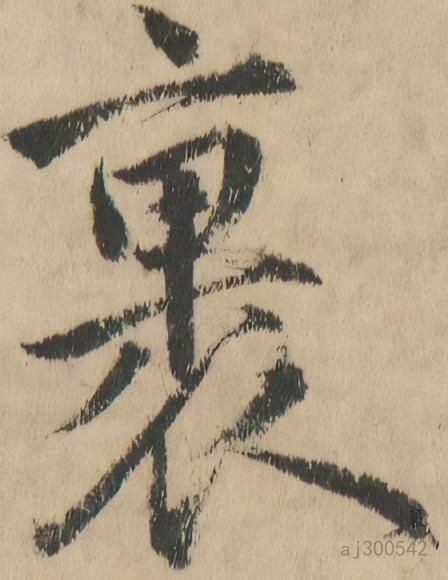 裹
aj300542